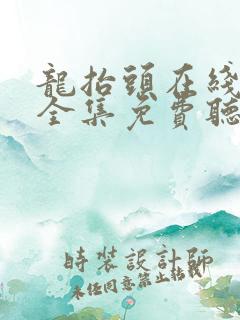 龍抬頭在綫
全集免費聽
時裝設計師
未經同意禁止轉載